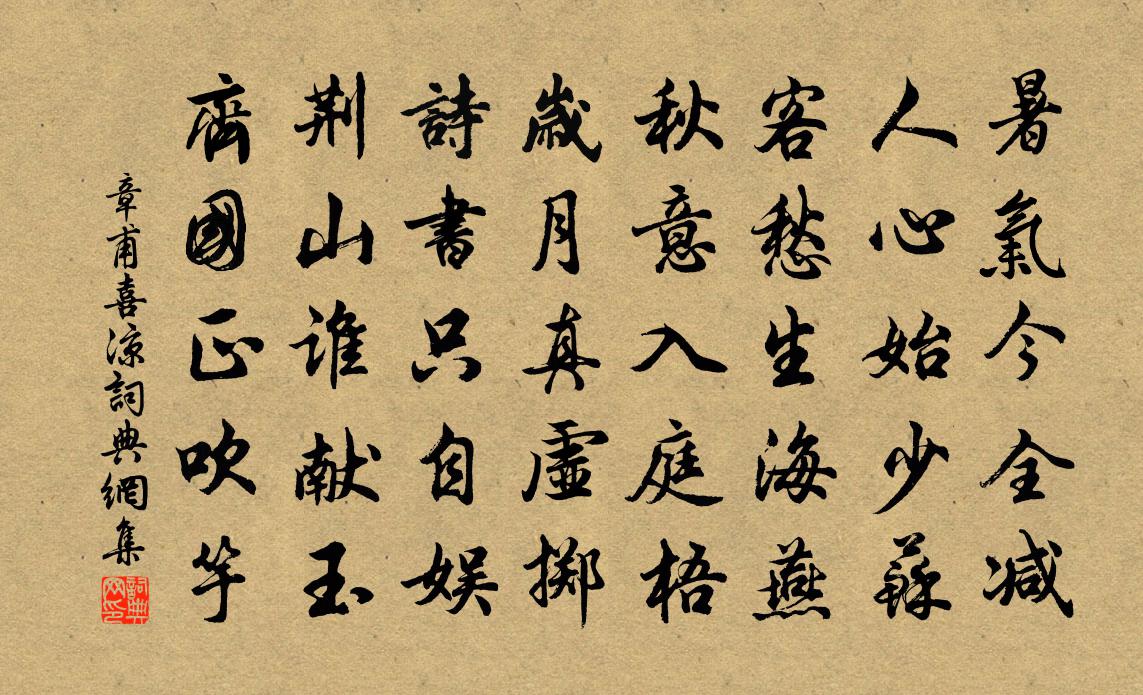 暑氣今全减
人心始少蘇
客愁生海燕
秋意入庭梧
歲月真虛擲
詩書只自娱
荆山谁献玉
齊國正吹竽
章甫喜涼詞典網集
詞典网印